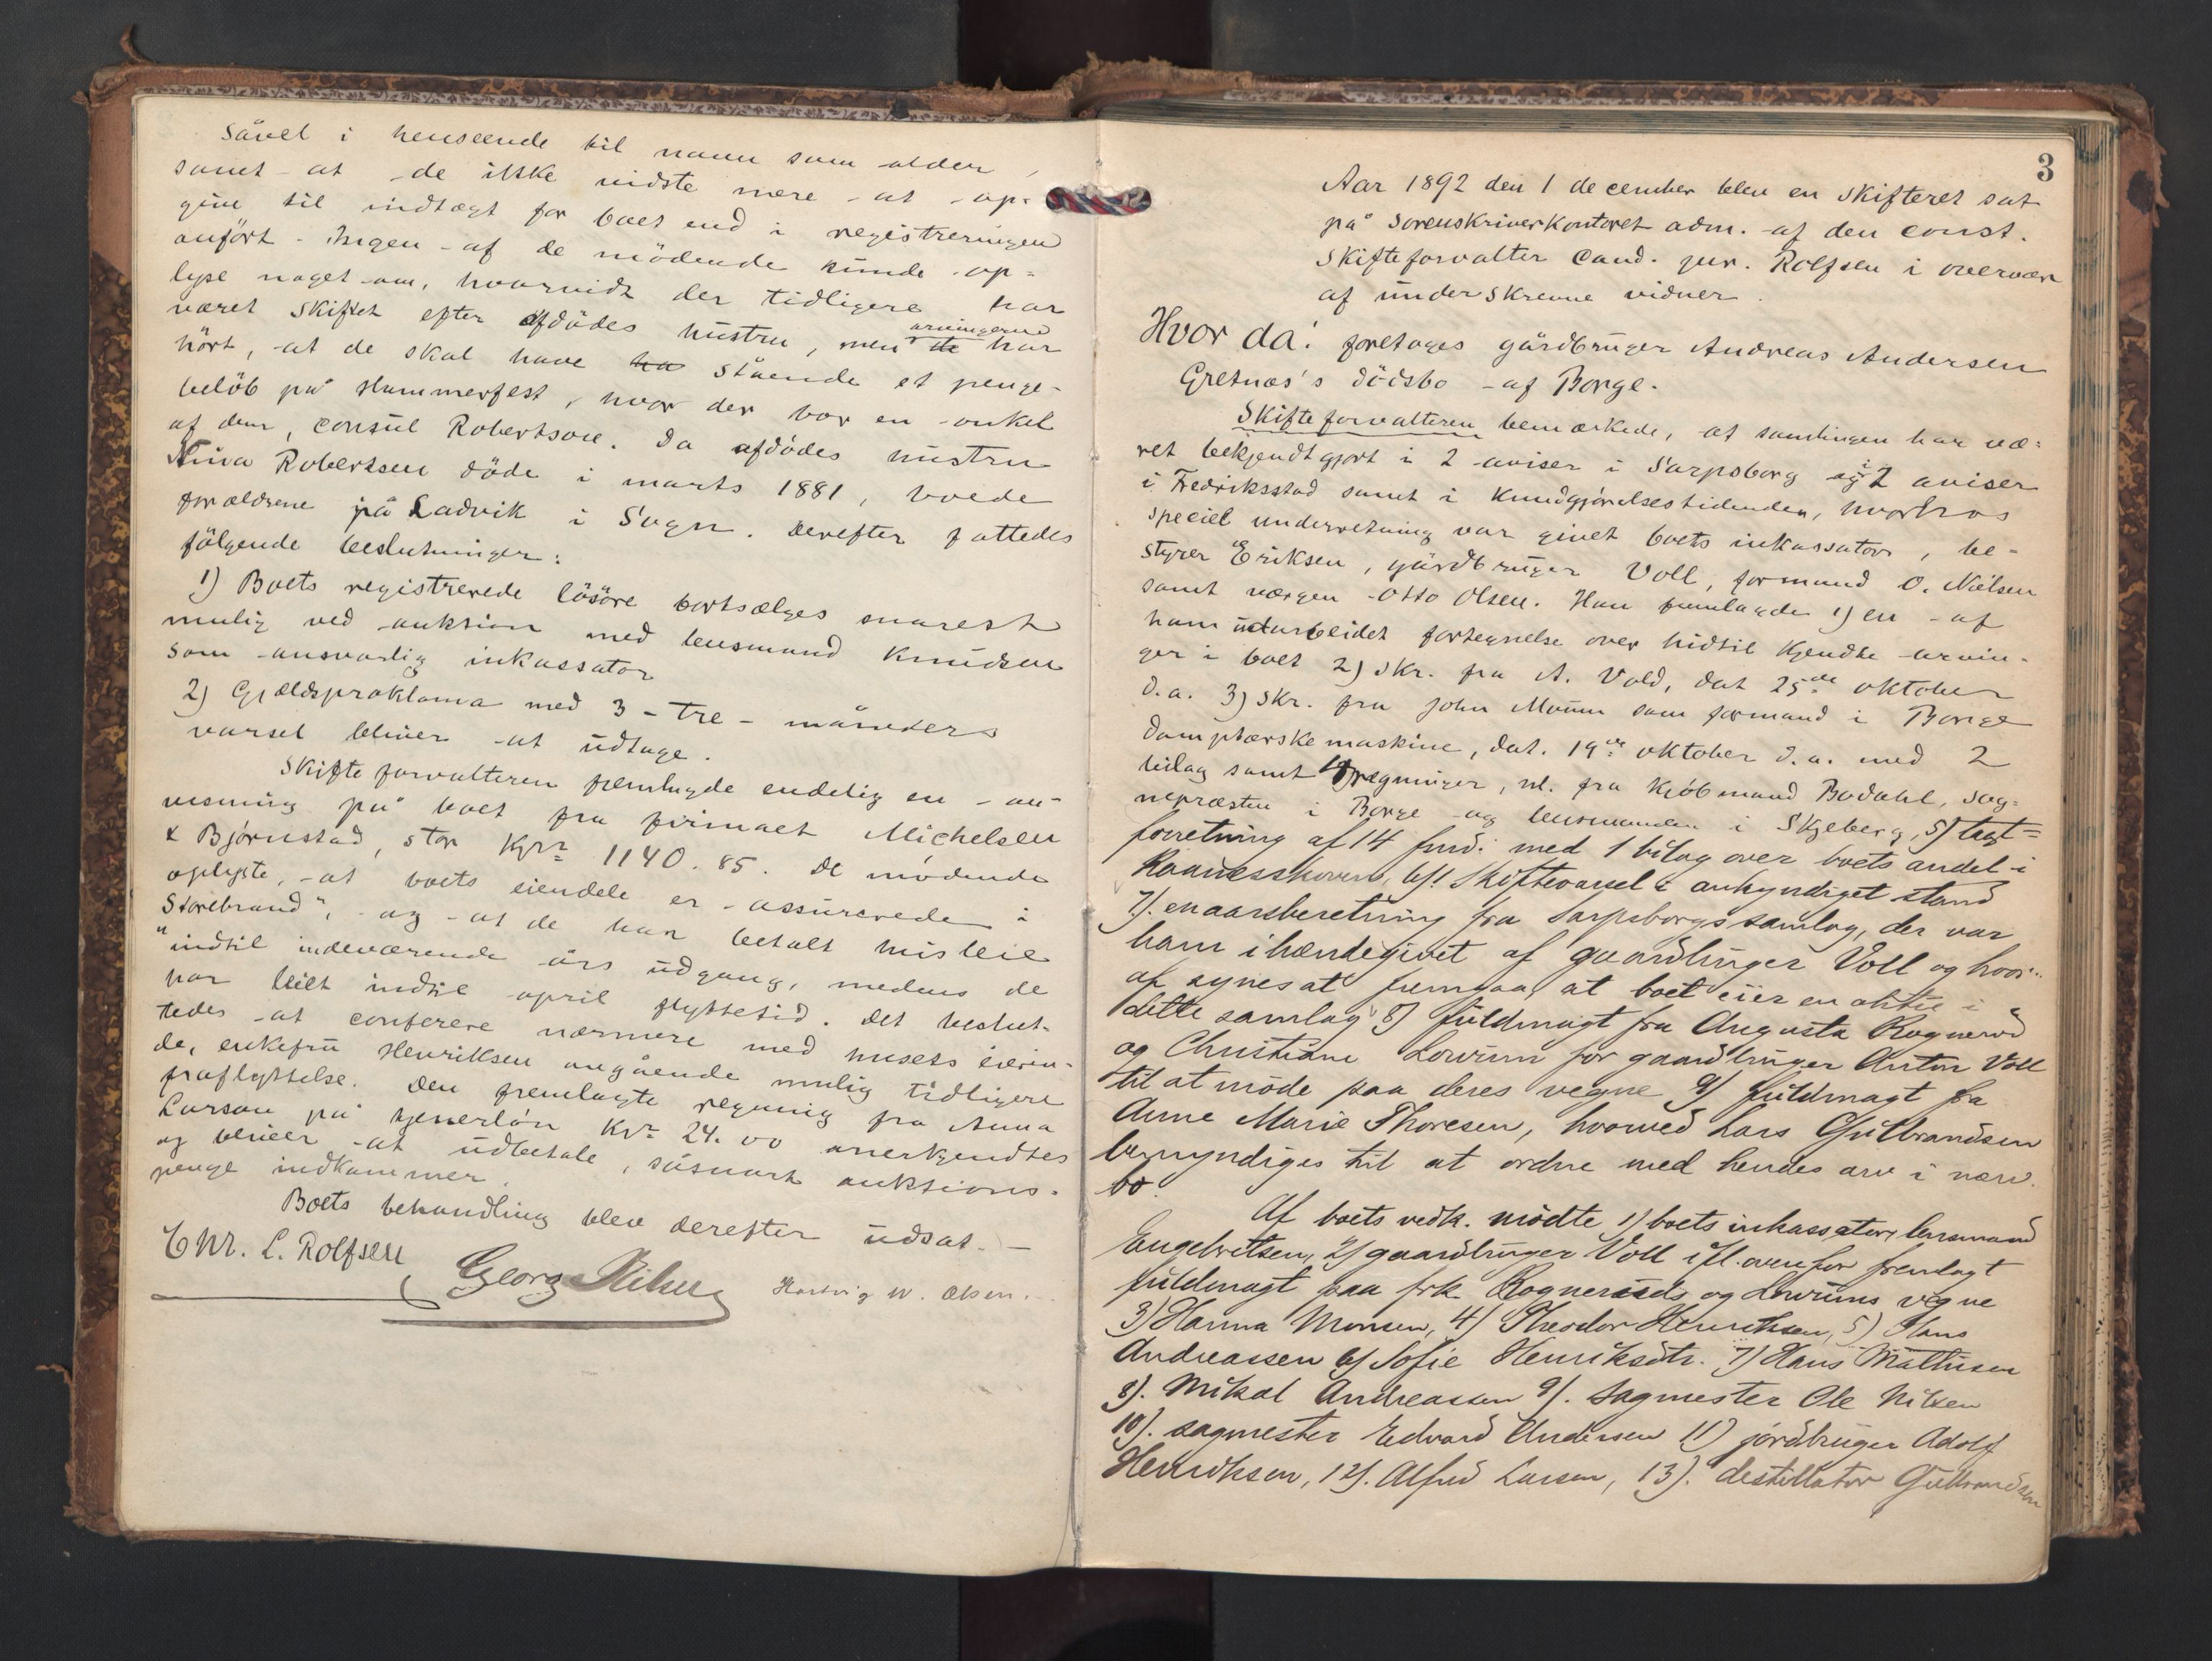 såvel i henseende til navn som alder,
samt at de ikke vidste mere at op-
give til indtægt for boet end i registreringen
anført. Ingen af de mödende kunde op=
lyse noget om, hvorvidt der tidligere har
været skiftet efter afdödes hustru, men de arvingerne har
hört, at de skal have ha stående et penge-
belöb på Hammerfest, hvor der bor en onkel
af dem, consul Robertson. Da afdödes hustru
Robertsen döde i marts 1881, boede
forældrene på Ladvik i Sogn. Derefter fattedes
fölgende beslutninger:
1) Boets registrerede lösöre bortsælges snarest
mulig ved auktion med lensmand Knudsen
som ansvarlig inkassator
2) Gjældsproklama med 3 - tre - måneders
varsel bliver at udtage.
Skifteforvalteren fremlagde endelig en an-
visning på boet fra firmaet Michelsen
& Bjørnstad, stor Kr 1140.85. De mödende
oplyste, at boets eiendele er assurerede i
Storebrand", og at de har betalt husleie
"indtil indeværende års udgang, medens de
har leiet indtil april flyttetid. Det beslut-
tedes at conferere nærmere med husets eierin-
de, enkefru Henriksen angående mulig tidligere
fraflyttelse. Den fremlagte regning fra Anna
Larsen på tjenerlön Kr. 24.00 anerkjendtes
og bliver at udbetale, såsnart auktions-
penge indkommer.
Boets behandling blev derefter udsat. -
Chr. L. Rolfsen
Georg Hartvig W. Olsen.
3
Aar 1892 den 1 december blev en skifteret sat
på sorenskriverkontoret adm. af den const.
skifteforvalter cand. jur. Rolfsen i overvær
af underskrevne vidner.
Hvor da: foretoges gårdbruger Andreas Andersen
Gretnæs's dödsbo af Borge.
Skifteforvalteren bemærkede, at samlingen har væ=
ret bekjendtgjort i 2 aviser i Sarpsborg og i 2 aviser
i Fredriksstad samt i Kundgjörelsestidenden, hvorhos
speciel underretning var givet boets inkassator, be-
styrer Eriksen, gårdbruger Voll, formand O. Nielsen
samt værgen Otto Olsen. Han fremlagde 1) en af
ham udarbeidet fortegnelse over hidtil kjendte arvin-
ger i boet 2) skr. fra A. Vold, dat 25de oktober
d.a. 3) skr. fra John Moum som formand i Borge
damptærskemaskine, dat. 19de oktober d.a. med 2
bilag samt 4) regninger, nl. fra kjöbmand Bodahl, sog=
nepræsten i Borge og lensmanden i Skjeberg, 5) taxt=
forretning af 14 med 1 bilag over boets andel i
6) Skiftevarsel i ankyndiget stand
7). en aarsberetning fra Sarpsborgs samlag, der var
ham ihændegivet af gaardbruger Voll og hvor-
af synes at fremgaa, at boet eier en aktie i
dette samlag 8) fuldmagt fra Augusta Rognerud
og Christiane Lovium for gaardbruger Anton Voll
til at møde paa deres vegne 9) fuldmagt fra
Anne Marie Thoresen, hvorved Lars Gulbrandsen
bemyndiges til at ordne med hendes arv i nærv.
bo.
Af boets vedk. mødte 1) boets inkassator, lensmand
Engebretsen, 2) gaardbruger Voll ifl. ovenfor fremlagt
fuldmagt paa frk Rogneruds og Loviums vegne
3) Hanna Monsen, 4) Theodor Henriksen, 5) Hans
Andreassen 6) Sofie Henriksdtr. 7) Hans Mathisen
8). Mikal Andreassen 9). sagmester Ole Nilsen
10). sagmester Edvard Andersen 11) jordbruger Adolf
Henriksen, 12). Alfred Larsen, 13). destillatør Gulbrandsen